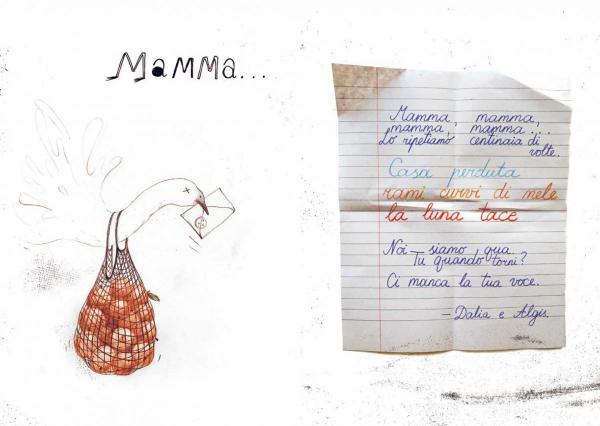 MAMMA...
Mamma, mamma,
mamma, mamma...
Lo ripetiamo centinaia di
volte.
Casa perduta
rami curvi di mele
la luna tace
Noi siamo qua.
Tu quando torni?
Ci manca la tua voce.
— Dalia e Algis.